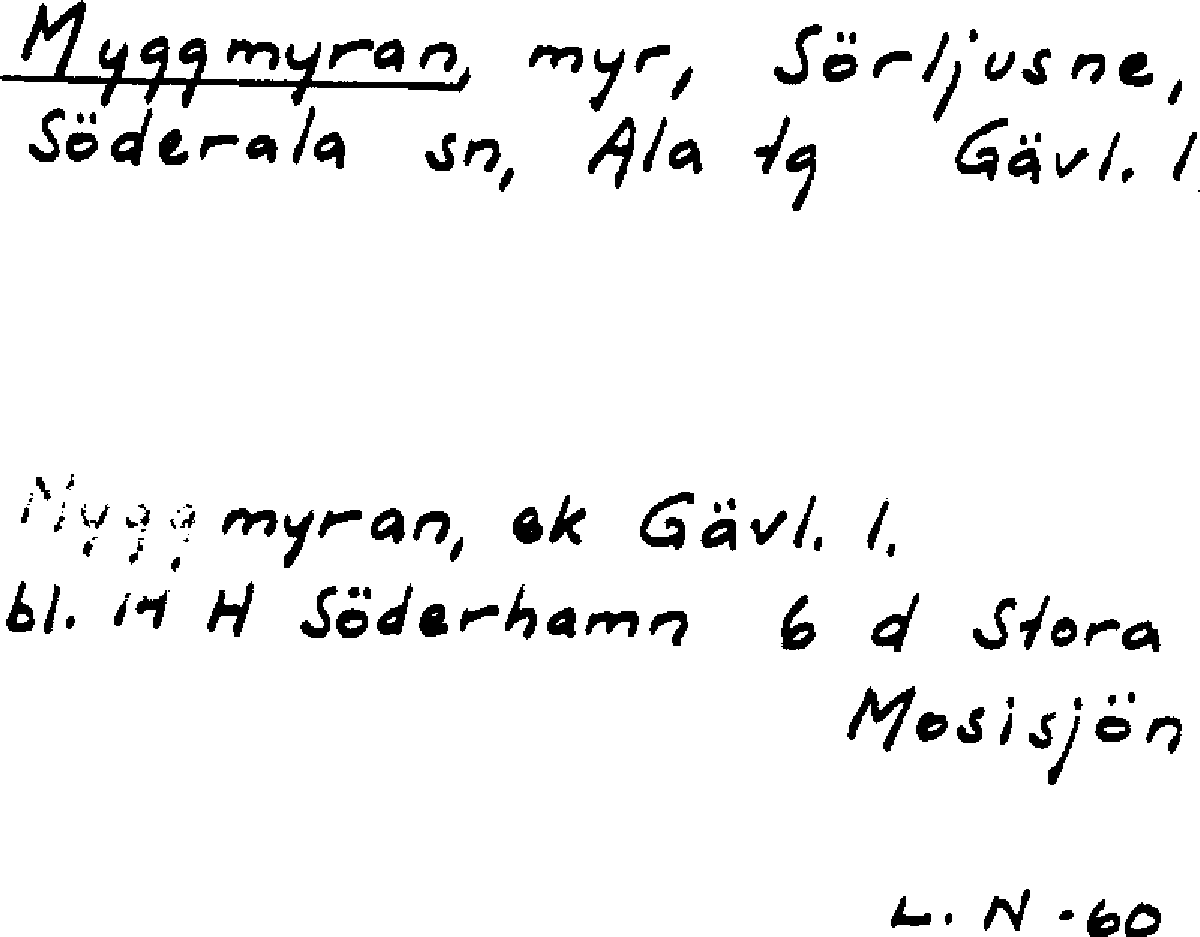 Myggmyran, myr, Sörljusne,
Söderala sn, Ala tg Gävl. l
Myggmyran, ek Gävl. l.
bl. 14 H Söderhamn 6 d Stora
Mosisjön
L. N -60